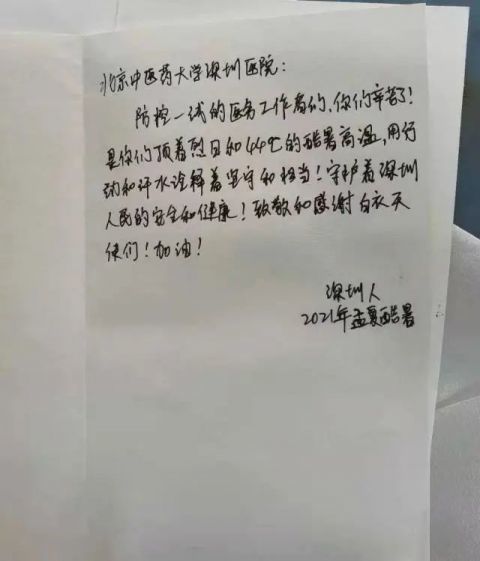 北京中医药大学深圳医院：
防控一线的医务工作者们、你们辛苦了！
是你们顶着烈日和44℃的酷暑高温，用行
动和汗水诠释着坚守和担当！守护着深圳
人民的安全和健康！致敬和感谢白衣天
使们！加油！
深圳人
2021年孟夏酷暑